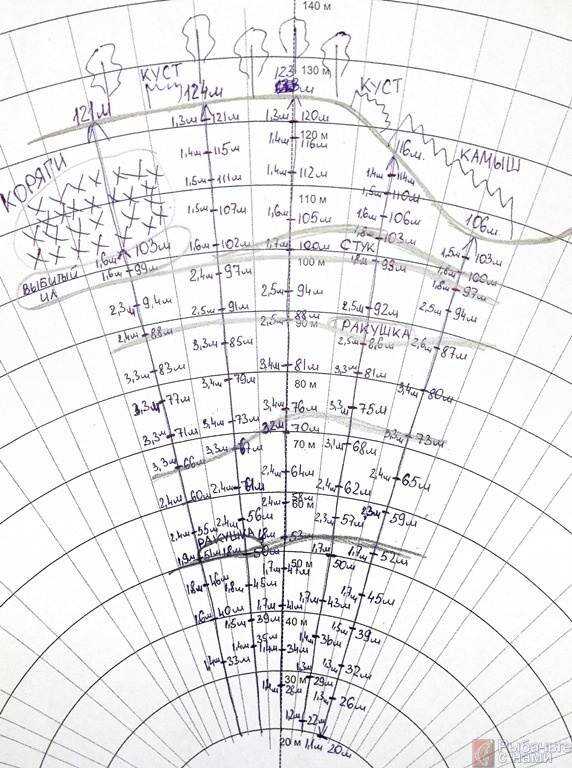 140 м
КУСТ
123
130 м
КУСТ
121м
124м
1,3м 121м
1,3м 120м
1,4м 115м
1,4м 116м
120 м
116м.
КАМЫШ
КОРЯГИ
1,5м 111м
1,4м 112м
1,4м 114м
1,5м 110м
1,5м 107м
1,6м 105м
110 м
1,6м 106м
106м.
1,6м 103м
1,6м 102м
1,7м 100м
СТУК
1,8м 103м
1,5м 103м
1,6м 99м
2,4м 97м
100 м
1,8м 99м
1,8м 100м
1,8м 97м
ВЫБИТЫЙ
ИЛ
2,3м 9,4м
2,5м 91м
2,5м 94м
2,5м 92м
2,5м 94м
2,4м 88м
2,5м 88м
90 м
РАКУШКА
3,3м 85м
2,5м 8,6м
2,6м 87м
3,3м 83м
3,4м 79м
3,4м 81м
3,3м 81м
3,4м 80м
80 м
3,3м 77м
3,4м 73м
3,4м 76м
3,3м 75м
3,3м 71м
3,3м 67м
3,2м 70м
3,1м 68м
3,3м 73м
70 м
3,3м 66м
2,4м 61м
2,4м 64м
2,4м 62м
2,4м 65м
2,4м 60м
2,4м 56м
2,4м 58м
60 м
2,3м 57м
2,3м 59м
2,4м 55м
РАКУШКА
1,8м 53
1,9м 51м
1,8м 50м
1,7м 50м
1,7м 52м
50 м
1,8м 46м
1,8м 45м
1,7м 47м
1,7м 43м
1,7м 45м
1,6м 40м
1,5м 39м
1,7м 41м
40 м
1,4м 36м
1,5м 39м
1,4м 33м
1,4м 35м
1,4м 34м
1,3м 29м
1,3м 32м
30 м
1,4м 28м
1,3м 26м
1,2м 22м
20 м
1,1м 20м
Рыбачьте
с нами